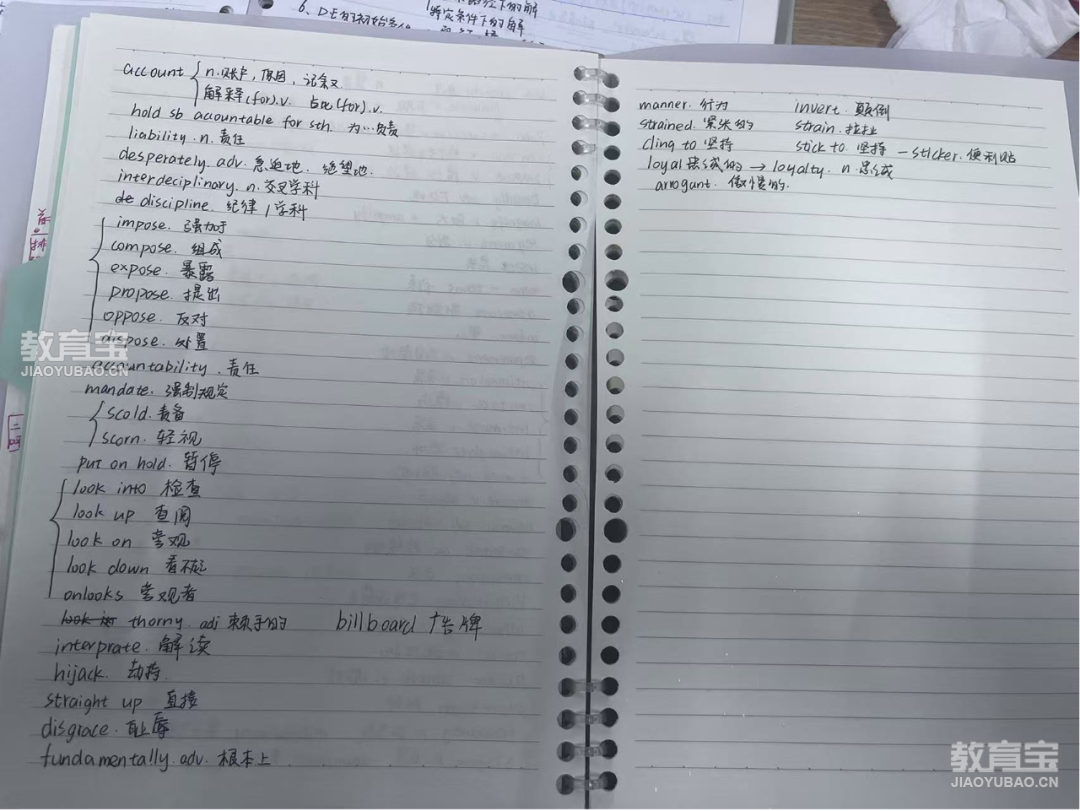 6、DE的初始条件
特定条件下的解
account { n.账户,原因,记条叉
解释(for).v. 占比(for).v.
hold sb accountable for sth. 为…负责
liability. n. 责任
desperately adv. 急迫地. 绝望地.
interdeciplinary. n. 交叉学科
de discipline. 纪律 / 学科
impose. 强加于
compose. 组成
expose. 暴露
propose. 提出
oppose. 反对
dispose. 处置
accountability. 责任
mandate. 强制规定
scold. 责备
scorn. 轻视
put on hold. 暂停
look into 检查
look up 查阅
look on 旁观
look down 看不起
onlooks 旁观者
look thorny. adj 棘手的 billboard 广告牌
interprate. 解读
hijack. 劫持.
straight up 直接
disgrace. 耻辱
fundamentally. adv. 根本上
manner. 行为 invert. 颠倒
strained. 紧张的 strain. 拉扯
cling to 坚持 stick to 坚持 — sticker. 便利贴
loyal 忠诚的 → loyalty. n. 忠诚
arrogant. 傲慢的.
教育宝
JIAOYUBAO.CN
教育宝
JIAOYUBAO.CN